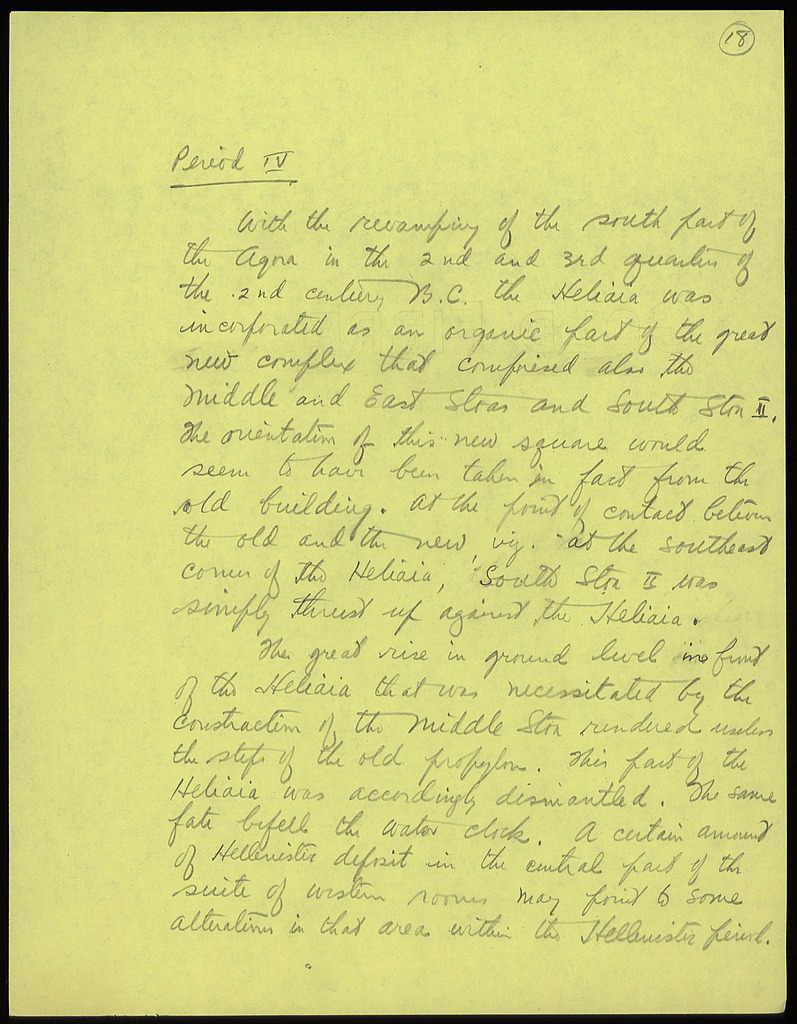 18
Period IV
With the revamping of the south part of
the Agora in the 2nd and 3rd quarters of
the 2nd century B.C. the Heliaia was
incorporated as an organic part of the great
new complex that comprised also the
Middle and East Stoas and South Stoa II.
The orientation of this new square would
seem to have been taken in fact from the
old building. At the point of contact between
the old and the new, viz. at the southeast
corner of the Heliaia, South Stoa II was
simply thrust up against the Heliaia.
The great rise in ground level in front
of the Heliaia that was necessitated by the
construction of the Middle Stoa rendered useless
the steps of the old propylon. This part of the
Heliaia was accordingly dismantled. The same
fate befell the water clock. A certain amount
of Hellenistic deposit in the central part of the
suite of western rooms may point to some
alterations in that area within the Hellenistic period.